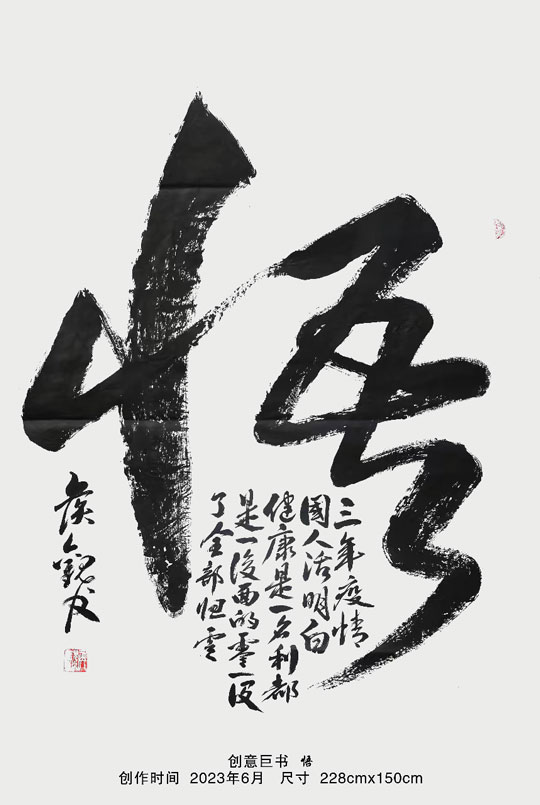 悟
三年疫情
國人活明白
健康是一名利都
是一後面的零一没
了全部归零
创意巨书 悟
创作时间 2023年6月 尺寸 228cmx150cm